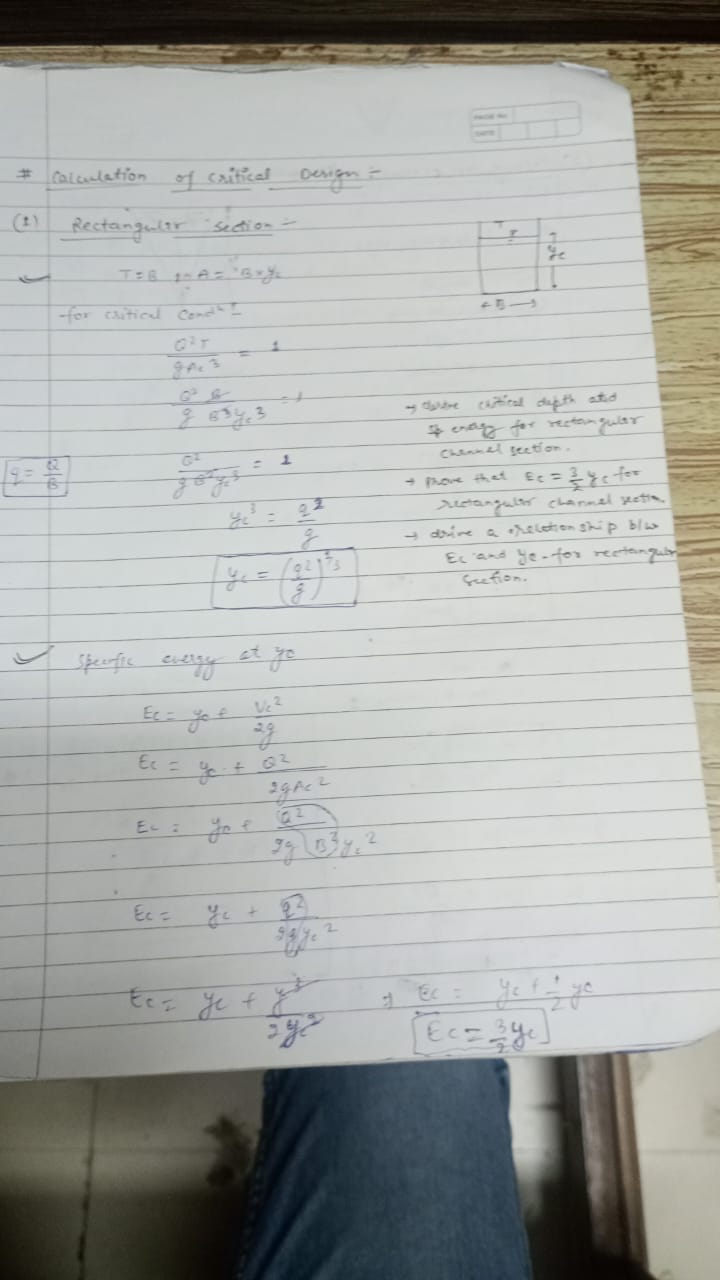 PAGE NO
DATE
# Calculation of critical Design :-
(1) Rectangular section :-
T = B A = B x yc
for critical Condn :-
Q²T / gAc³ = 1
Q² B / g B³ yc³ = 1
q = Q/B
Q² / g B² yc³ = 1
yc³ = q² / g
yc = (q²/g)^1/3
T
yc
← B →
→ derive critical depth and
energy for rectangular
channel section.
→ prove that Ec = 3/2 yc for
rectangular channel section
→ drive a relationship b/w
Ec and yc for rectangular
Section.
Specific energy at yc
Ec = yc + Vc² / 2g
Ec = yc + Q² / 2gAc²
Ec = yc + Q² / 2g B² yc²
Ec = yc + q² / 2g yc²
Ec = yc + y³ / 2yc² ⇒ Ec = yc + 1/2 yc
Ec = 3/2 yc